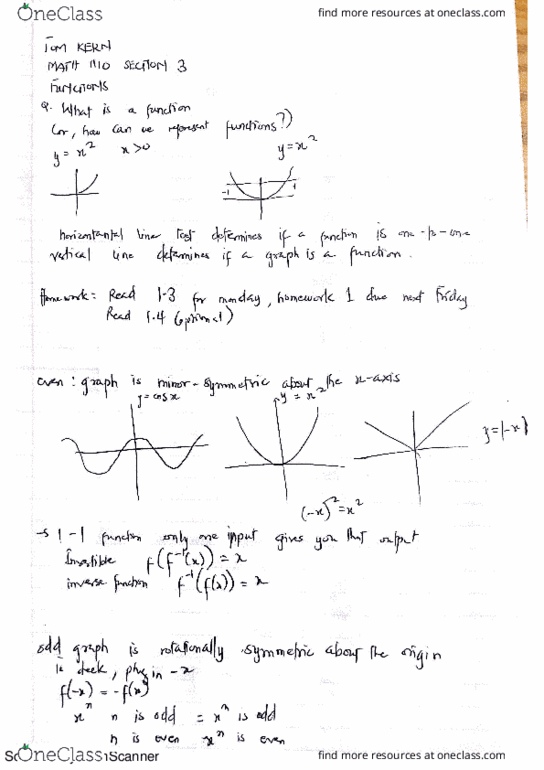 OneClass find more resources at oneclass.com
TOM KERN
MATH 1110 SECTION 3
FUNCTIONS
Q. What is a function
(or, how can we represent functions?)
y = x² x>0 y = x²
-1 1
horizantantal line test determines if a function is one-to-one
vertical line determines if a graph is a function.
Homework: Read 1-3 for monday, homework 1 due next Friday
Read 1.4 (optional)
even: graph is mirror-symmetric about the x-axis
y = cos x y = x² y=|-x|
(-x)² = x²
→ 1-1 function only one input gives you that output
Invertible f(f⁻¹(x)) = x
inverse function f⁻¹(f(x)) = x
odd graph is rotationally symmetric about the origin
to check, plug in -x
f(-x) = -f(x)
xⁿ n is odd = xⁿ is odd
n is even xⁿ is even
OneClass Scanner find more resources at oneclass.com